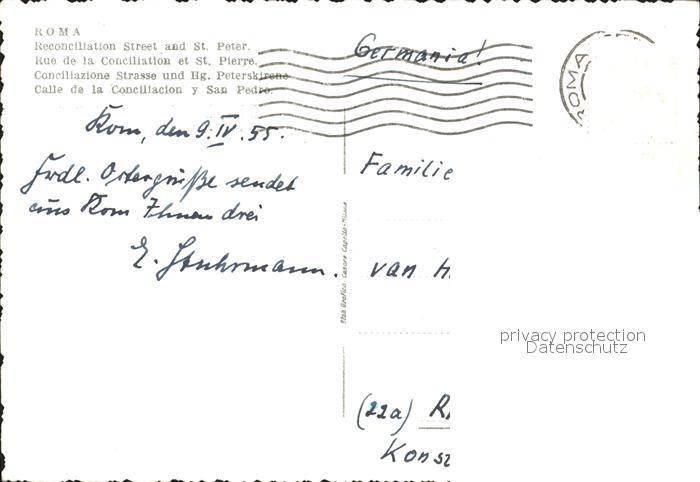 ROMA
Reconciliation Street and St. Peter.
Rue de la Conciliation et St. Pierre.
Conciliazione Strasse und Hg. Peterskirche
Calle de la Conciliacion y San Pedro.
Germania!
ROMA
Rom, den 9. IV. 55.
Frdl. Ostergrüße sendet
aus Rom Ihnen drei
E. Stuhrmann.
Familie
van H.
(22a) R
Konst
privacy protection
Datenschutz